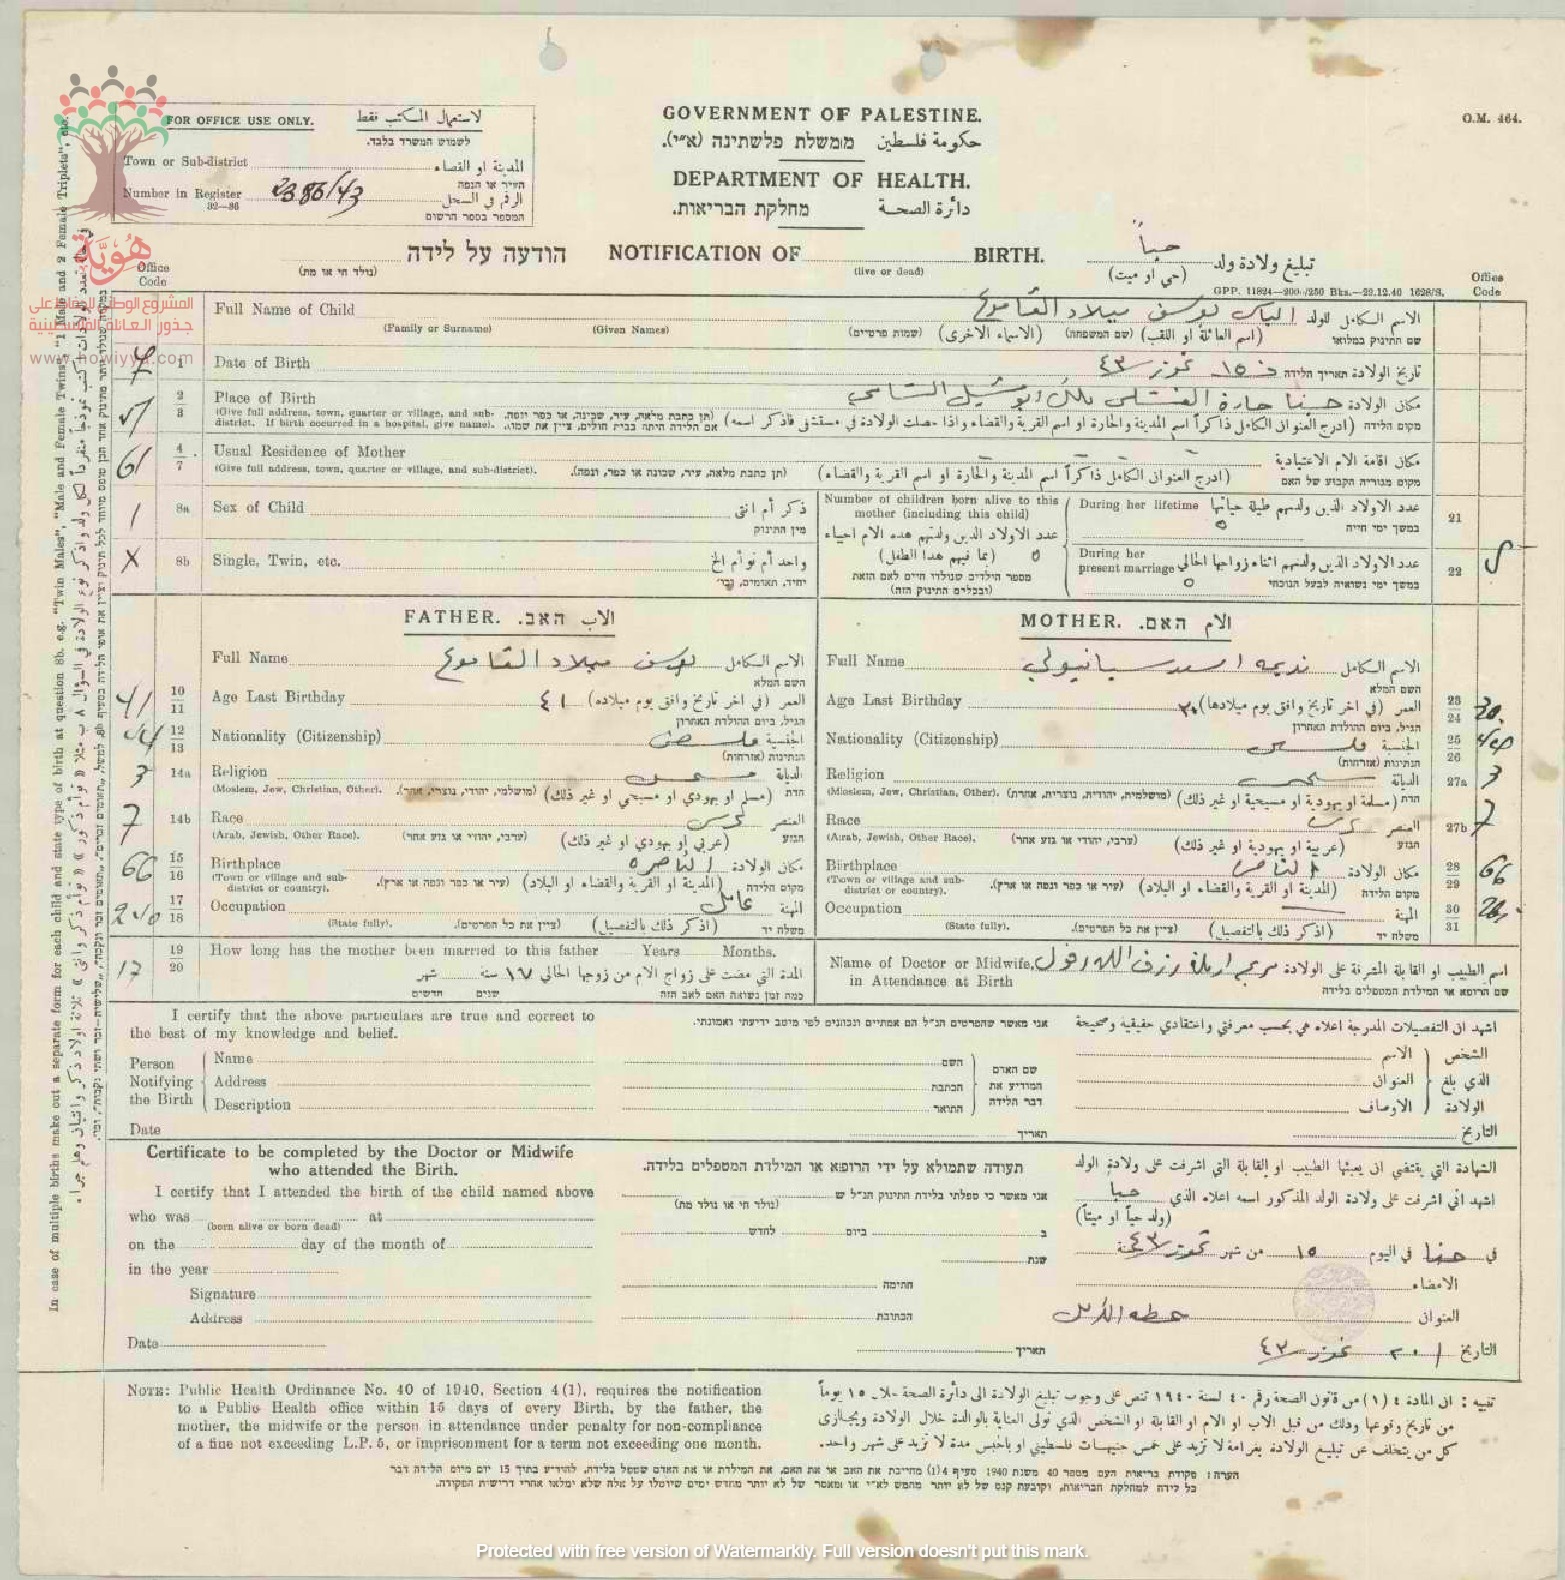 FOR OFFICE USE ONLY. لاستعمال المكتب فقط
לשמוש המשרד בלבד.
Town or Sub-district المدينة او القضاء
העיר או הנפה
Number in Register 2386/43 الرقم في السجل
32—86 המספר בספר הרשום
GOVERNMENT OF PALESTINE.
ממשלת פלשתינה (א״י). حكومة فلسطين
DEPARTMENT OF HEALTH.
מחלקת הבריאות. دائرة الصحة
O.M. 464.
هويّة
المشروع الوطني للحفاظ على
جذور العائلة الفلسطينية
www.howiyya.com
הודעה על לידה NOTIFICATION OF BIRTH. تبليغ ولادة ولد حياً
(נולד חי או מת) (live or dead) (حي او ميت)
GPP. 11824—200/250 Bks.—29.12.40 1626/S.
Office Code
Office Code
Full Name of Child الياس يوسف ميلاد القاموع الاسم الكامل للولد
(Family or Surname) (Given Names) (שמות פרטיים) (الاسماء الاخرى) (שם המשפחה) (اسم العائلة او اللقب) שם התינוק במלואו
7 1 Date of Birth ١٥ تموز ٤٣ تاريخ الولادة תאריך הלידה
2 3 Place of Birth حيفا حارة مكان الولادة
(Give full address, town, quarter or village, and sub-district. If birth occurred in a hospital, give name). (תן כתבת מלאה, עיר, שכונה, או כפר ונפה. אם הלידה היתה בבית חולים, ציין את שמו). (ادرج العنوان الكامل ذاكراً اسم المدينة والحارة او اسم القرية والقضاء واذا حصلت الولادة في مستشفى فاذكر اسمه) מקום הלידה
61 4 7 Usual Residence of Mother مكان اقامة الام الاعتيادية
(Give full address, town, quarter or village, and sub-district). (תן כתבת מלאה, עיר, שכונה או כפר, ונפה). (ادرج العنوان الكامل ذاكراً اسم المدينة والحارة او اسم القرية والقضاء) מקום מגוריה הקבוע של האם
1 8a Sex of Child ذكر أم انثى
מין התינוק
X 8b Single, Twin, etc. واحد أم توأم الخ
יחיד, תאומים, וכו׳
Number of children born alive to this mother (including this child)
عدد الاولاد الذين ولدتهم هذه الام احياء
(بما فيهم هذا الطفل) ٥
מספר הילדים שנולדו חיים לאם הזאת
(ובכללם התינוק הזה)
During her lifetime عدد الاولاد الذين ولدتهم طيلة حياتها ٥ 21
במשך ימי חייה
During her present marriage عدد الاولاد الذين ولدتهم اثناء زواجها الحالي ٥ 22
במשך ימי נשואיה לבעל הנוכחי
FATHER. האב. الاب
Full Name يوسف ميلاد القاموع الاسم الكامل
השם המלא
41 10 11 Age Last Birthday ٤١ العمر (في اخر تاريخ وافق يوم ميلاده)
הגיל, ביום ההולדת האחרון
12 13 Nationality (Citizenship) فلسطيني الجنسية
הנתינות (אזרחות)
3 14a Religion مسيحي الديانة
(Moslem, Jew, Christian, Other). (מושלמי, יהודי, נוצרי, אחר). (مسلم او يهودي او مسيحي او غير ذلك) הדת
7 14b Race عربي العنصر
(Arab, Jewish, Other Race). (ערבי, יהודי או גזע אחר) (عربي او يهودي او غير ذلك) הגזע
66 15 16 Birthplace الناصره مكان الولادة
(Town or village and sub-district or country). (עיר או כפר ונפה או ארץ). (المدينة او القرية والقضاء او البلاد) מקום הלידה
240 17 18 Occupation عامل المهنة
(State fully). (ציין את כל הפרטים). (اذكر ذلك بالتفصيل) משלח יד
17 19 20 How long has the mother been married to this father Years Months.
المدة التي مضت على زواج الام من زوجها الحالي ١٧ سنة شهر
כמה זמן נשואה האם לאב הזה שנים חדשים
MOTHER. האם. الام
Full Name نديمه اسعد الاسم الكامل
השם המלא
Age Last Birthday ٣٠ العمر (في اخر تاريخ وافق يوم ميلادها) 23 24 30
הגיל, ביום ההולדת האחרון
Nationality (Citizenship) الجنسية 25 26
הנתינות (אזרחות)
Religion مسيحي الديانة 27a 3
(Moslem, Jew, Christian, Other). (מושלמית, יהודית, נוצרית, אחרת) (مسلمة او يهودية او مسيحية او غير ذلك) הדת
Race العنصر 27b 7
(Arab, Jewish, Other Race). (ערבי, יהודי או גזע אחר) (عربية او يهودية او غير ذلك) הגזע
Birthplace الناصره مكان الولادة 28 29 66
(Town or village and sub-district or country). (עיר או כפר ונפה או ארץ). (المدينة او القرية والقضاء او البلاد) מקום הלידה
Occupation المهنة 30 31
(State fully). (ציין את כל הפרטים). (اذكر ذلك بالتفصيل) משלח יד
Name of Doctor or Midwife in Attendance at Birth مريم ارملة رزق الله اسم الطبيب او القابلة المشرفة على الولادة
שם הרופא או המילדת המטפלים בלידה
I certify that the above particulars are true and correct to the best of my knowledge and belief.
אני מאשר שהפרטים הנ״ל הם אמתיים ונכונים לפי מיטב ידיעתי ואמונתי.
اشهد ان التفصيلات المدرجة اعلاه هي بحسب معرفتي واعتقادي حقيقيه وصحيحة
Person Notifying the Birth
Name השם الاسم
Address הכתבת العنوان
Description התואר الاوصاف
שם האדם המודיע את דבר הלידה
الشخص الذي بلغ الولادة
Date תאריך التاريخ
Certificate to be completed by the Doctor or Midwife who attended the Birth.
תעודה שתמולא על ידי הרופא או המילדת המטפלים בלידה.
الشهادة التي يقتضي ان يعبئها الطبيب او القابلة التي اشرفت على ولادة الولد
I certify that I attended the birth of the child named above
who was at
(born alive or born dead)
on the day of the month of
in the year
Signature
Address
Date
אני מאשר כי טפלתי בלידת התינוק הנ״ל ש
(נולד חי או נולד מת)
ב ביום לחדש
שנת
חתימה
הכתובת
תאריך
اشهد اني اشرفت على ولادة الولد المذكور اسمه اعلاه الذي حيا
(ولد حياً او ميتاً)
في حيفا في اليوم ١٥ من شهر تموز سنة ٤٣
الامضاء
العنوان محطه الكرمل
التاريخ ٢٠ تموز ٤٣
NOTE: Public Health Ordinance No. 40 of 1940, Section 4(1), requires the notification
to a Public Health office within 15 days of every Birth, by the father, the
mother, the midwife or the person in attendance under penalty for non-compliance
of a fine not exceeding L.P. 5, or imprisonment for a term not exceeding one month.
تنبيه : ان المادة ٤ (١) من قانون الصحة رقم ٤٠ لسنة ١٩٤٠ تنص على وجوب تبليغ الولادة الى دائرة الصحة خلال ١٥ يوماً
من تاريخ وقوعها وذلك من قبل الاب او الام او القابلة او الشخص الذي تولى العناية بالوالدة خلال الولادة ويجازى
كل من يتخلف عن تبليغ الولادة بغرامة لا تزيد على خمس جنيهات فلسطيني او بالحبس مدة لا تزيد على شهر واحد.
הערה: פקודת בריאות העם מספר 40 משנת 1940 סעיף 4(1) מחייבת את האב או את האם, את המילדת או את האדם שטפל בלידה, להודיע בתוך 15 יום מיום הלידה דבר
כל לידה למחלקת הבריאות, וקובעת קנס של לא יותר מחמש לא״י או מאסר של לא יותר מחדש ימים שיוטלו על אלה שלא ימלאו אחרי דרישות הפקודה.
In case of multiple births make out a separate form for each child and state type of birth at question 8b. e.g. "Twin Males", "Male and Female Twins", "1 Male and 2 Female Triplets", etc.
Protected with free version of Watermarkly. Full version doesn't put this mark.